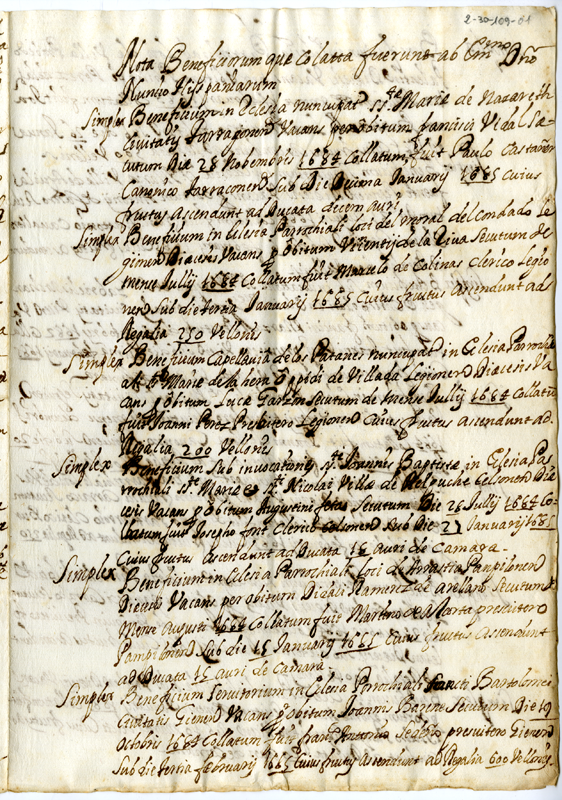 2-30-109-01
Nota Beneficiorum que Colatta fuerunt ab Em̃o Dño
Nuncio Hispaniarum
Simplex Beneficium in Eclesia nuncupat SS.tæ Mariæ de Nazareth
Civitatis Tarraconen Vacans per obitum francisci Vidal Se-
cutum Die 28 Nobembris 1684 Collatum fuit Paulo Castaner
Canonico Tarraconen Sub Die Decima Januarij 1685 Cuius
fructus Ascendunt ad Ducata decem auri
Simplex Beneficium in Eclesia Parrochiali loci del moral del condado Le
gionen Diecesis Vacans p obitum Vicentij de la Riva Secutum de
mense Jullij 1684 Collatum fuit Marcelo de Colinas Clerico Legio
nen Sub die tertia Januarij 1685 Cuius fructus Ascendunt ad
Regalia 250 Vellonis
Simplex Beneficium Capellania de los Patanes nuncupat in Eclesia Parrochia
li Sᵗᵉ Mariæ de la hera Oppidi de Villada Legionen Diecesis Va
cans p obitum Lucæ Garzon Secutum de Mense Jullij 1684 Collatū
fuit Joanni Perez Presbitero Legionen Cuius fructus ascendunt ad
Regalia 200 Vellonis
Simplex Beneficium Sub invocatione Sᵗⁱ Joannis Baptistæ in Eclesia Pa
rrochiali Sᵗᵉ Mariæ et Sᵗⁱ Nicolai Villæ de Celsonen Die
cesis Vacans p obitum Augustini Secutum Die 28 Jullij 1684 Co-
llatum fuit Josepho font Clerico Celsonen Sub Die 27 Januarij 1685
Cuius fructus ascendunt ad Ducata 18 auri de Camara
Simplex Beneficium in Eclesia Parrochiali Loci de Pampilonen
Diecesis Vacans per obitum Didaci Ramirez de arellano Secutum
Mense Augusti 1684 Collatum fuit Martino de presbitero
Pampilonen Sub die 15 Januarij 1685 Cuius fructus Ascendunt
ad Ducata 15 auri de Camara
Simplex Beneficium Servitorium in Eclesia Parochiali Sancti Bartolomei
Civitatis Gienen Vacans p obitum Joannis Secutum Die 19
Octobris 1684 Collatum fuit franc Antonio presvitero Gienen
Sub die tertia februarij 1685 Cuius fructus ascendunt ad Regalia 600 Vellonis